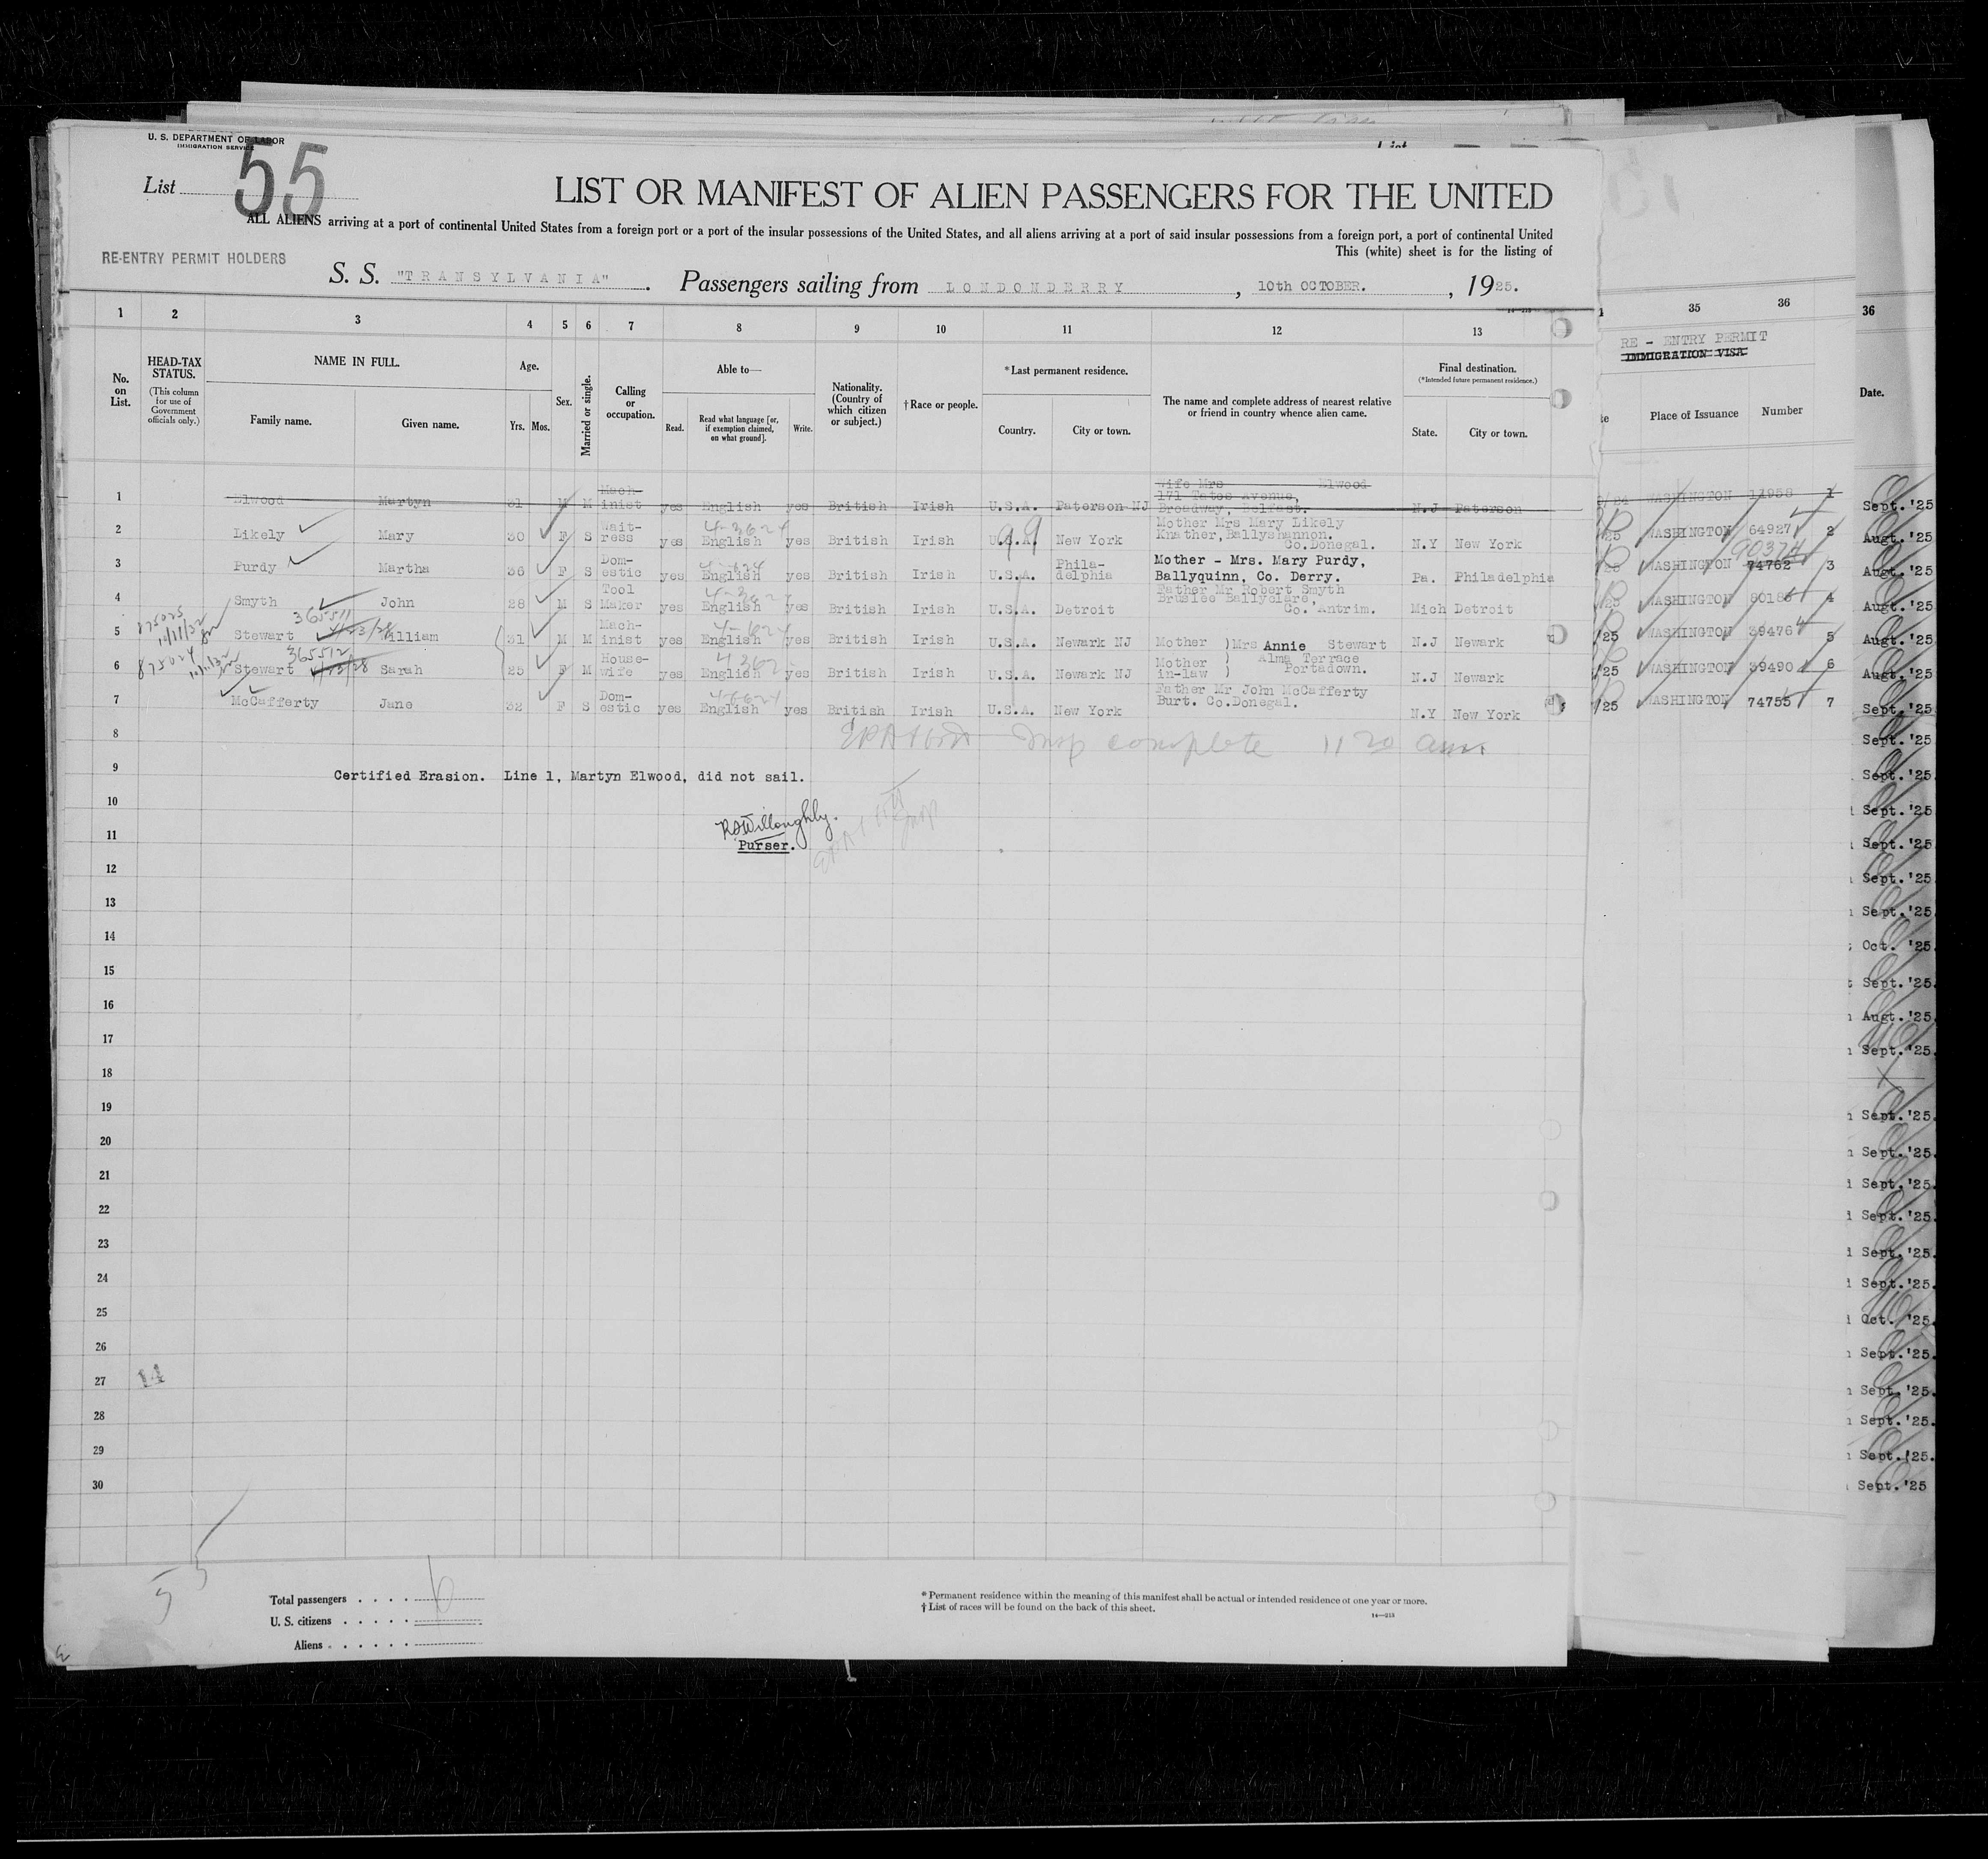 U. S. DEPARTMENT OF LABOR
IMMIGRATION SERVICE
List 55
LIST OR MANIFEST OF ALIEN PASSENGERS FOR THE UNITED
ALL ALIENS arriving at a port of continental United States from a foreign port or a port of the insular possessions of the United States, and all aliens arriving at a port of said insular possessions from a foreign port, a port of continental United
This (white) sheet is for the listing of
RE-ENTRY PERMIT HOLDERS
S. S. "TRANSYLVANIA". Passengers sailing from LONDONDERRY, 10th OCTOBER., 1925.
1 2 3 4 5 6 7 8 9 10 11 12 13 35 36 36
No. on List.
HEAD-TAX STATUS.
(This column for use of Government officials only.)
NAME IN FULL.
Family name. Given name.
Age.
Yrs. Mos.
Sex.
Married or single.
Calling or occupation.
Able to—
Read. Read what language [or, if exemption claimed, on what ground]. Write.
Nationality. (Country of which citizen or subject.)
†Race or people.
*Last permanent residence.
Country. City or town.
The name and complete address of nearest relative or friend in country whence alien came.
Final destination.
(*Intended future permanent residence.)
State. City or town.
RE - ENTRY PERMIT
IMMIGRATION VISA
Place of Issuance Number
Date.
1 Elwood Martyn 31 M M Mach-inist yes English yes British Irish U.S.A. Paterson NJ Wife Mrs Elwood 171 Tates Avenue, Broadway, Belfast. N.J Paterson WASHINGTON 11958 1
2 Likely Mary 30 F S Wait-ress yes English yes British Irish U.S.A. New York Mother Mrs Mary Likely Knather, Ballyshannon. Co.Donegal. N.Y New York /25 WASHINGTON 64927 2
3 Purdy Martha 36 F S Dom-estic yes English yes British Irish U.S.A. Phila-delphia Mother - Mrs. Mary Purdy, Ballyquinn, Co. Derry. Pa. Philadelphia WASHINGTON 74762 90374 3
4 Smyth John 28 M S Tool Maker yes English yes British Irish U.S.A. Detroit Father Mr Robert Smyth Bruslee Ballyclare, Co. Antrim. Mich Detroit /25 WASHINGTON 80186 4
875025 10/11/32 365511 4/23/28
5 Stewart William 31 M M Mach-inist yes English yes British Irish U.S.A. Newark NJ Mother ) Mrs Annie Stewart N.J Newark /25 WASHINGTON 39476 5
875024 365512 4/23/28
6 Stewart Sarah 25 F M House-wife yes English yes British Irish U.S.A. Newark NJ Mother in-law ) Alma Terrace Portadown. N.J Newark /25 WASHINGTON 39490 6
7 McCafferty Jane 32 F S Dom-estic yes English yes British Irish U.S.A. New York Father Mr John McCafferty Burt. Co.Donegal. N.Y New York /25 WASHINGTON 74755 7
8 Insp complete 11 20 am
9 Certified Erasion. Line 1, Martyn Elwood, did not sail.
10
RSWilloughby.
11
Purser.
12
13
14
15
16
17
18
19
20
21
22
23
24
25
26
27 14
28
29
30
Sept.'25
Augt.'25
Augt.'25
Augt.'25
Augt.'25
Augt.'25
Sept.'25
Sept.'25
Sept.'25
Sept.'25
Sept.'25
Sept.'25
Sept.'25
Oct. '25
Sept.'25
Augt.'25
Sept.'25
Sept.'25
Sept.'25
Sept.'25
Sept.'25
Sept.'25
Sept.'25
Oct. '25
Sept.'25
Sept.'25
Sept.'25
Sept.'25
Sept.'25
55
Total passengers 6
U. S. citizens
Aliens
* Permanent residence within the meaning of this manifest shall be actual or intended residence of one year or more.
† List of races will be found on the back of this sheet.
14—215